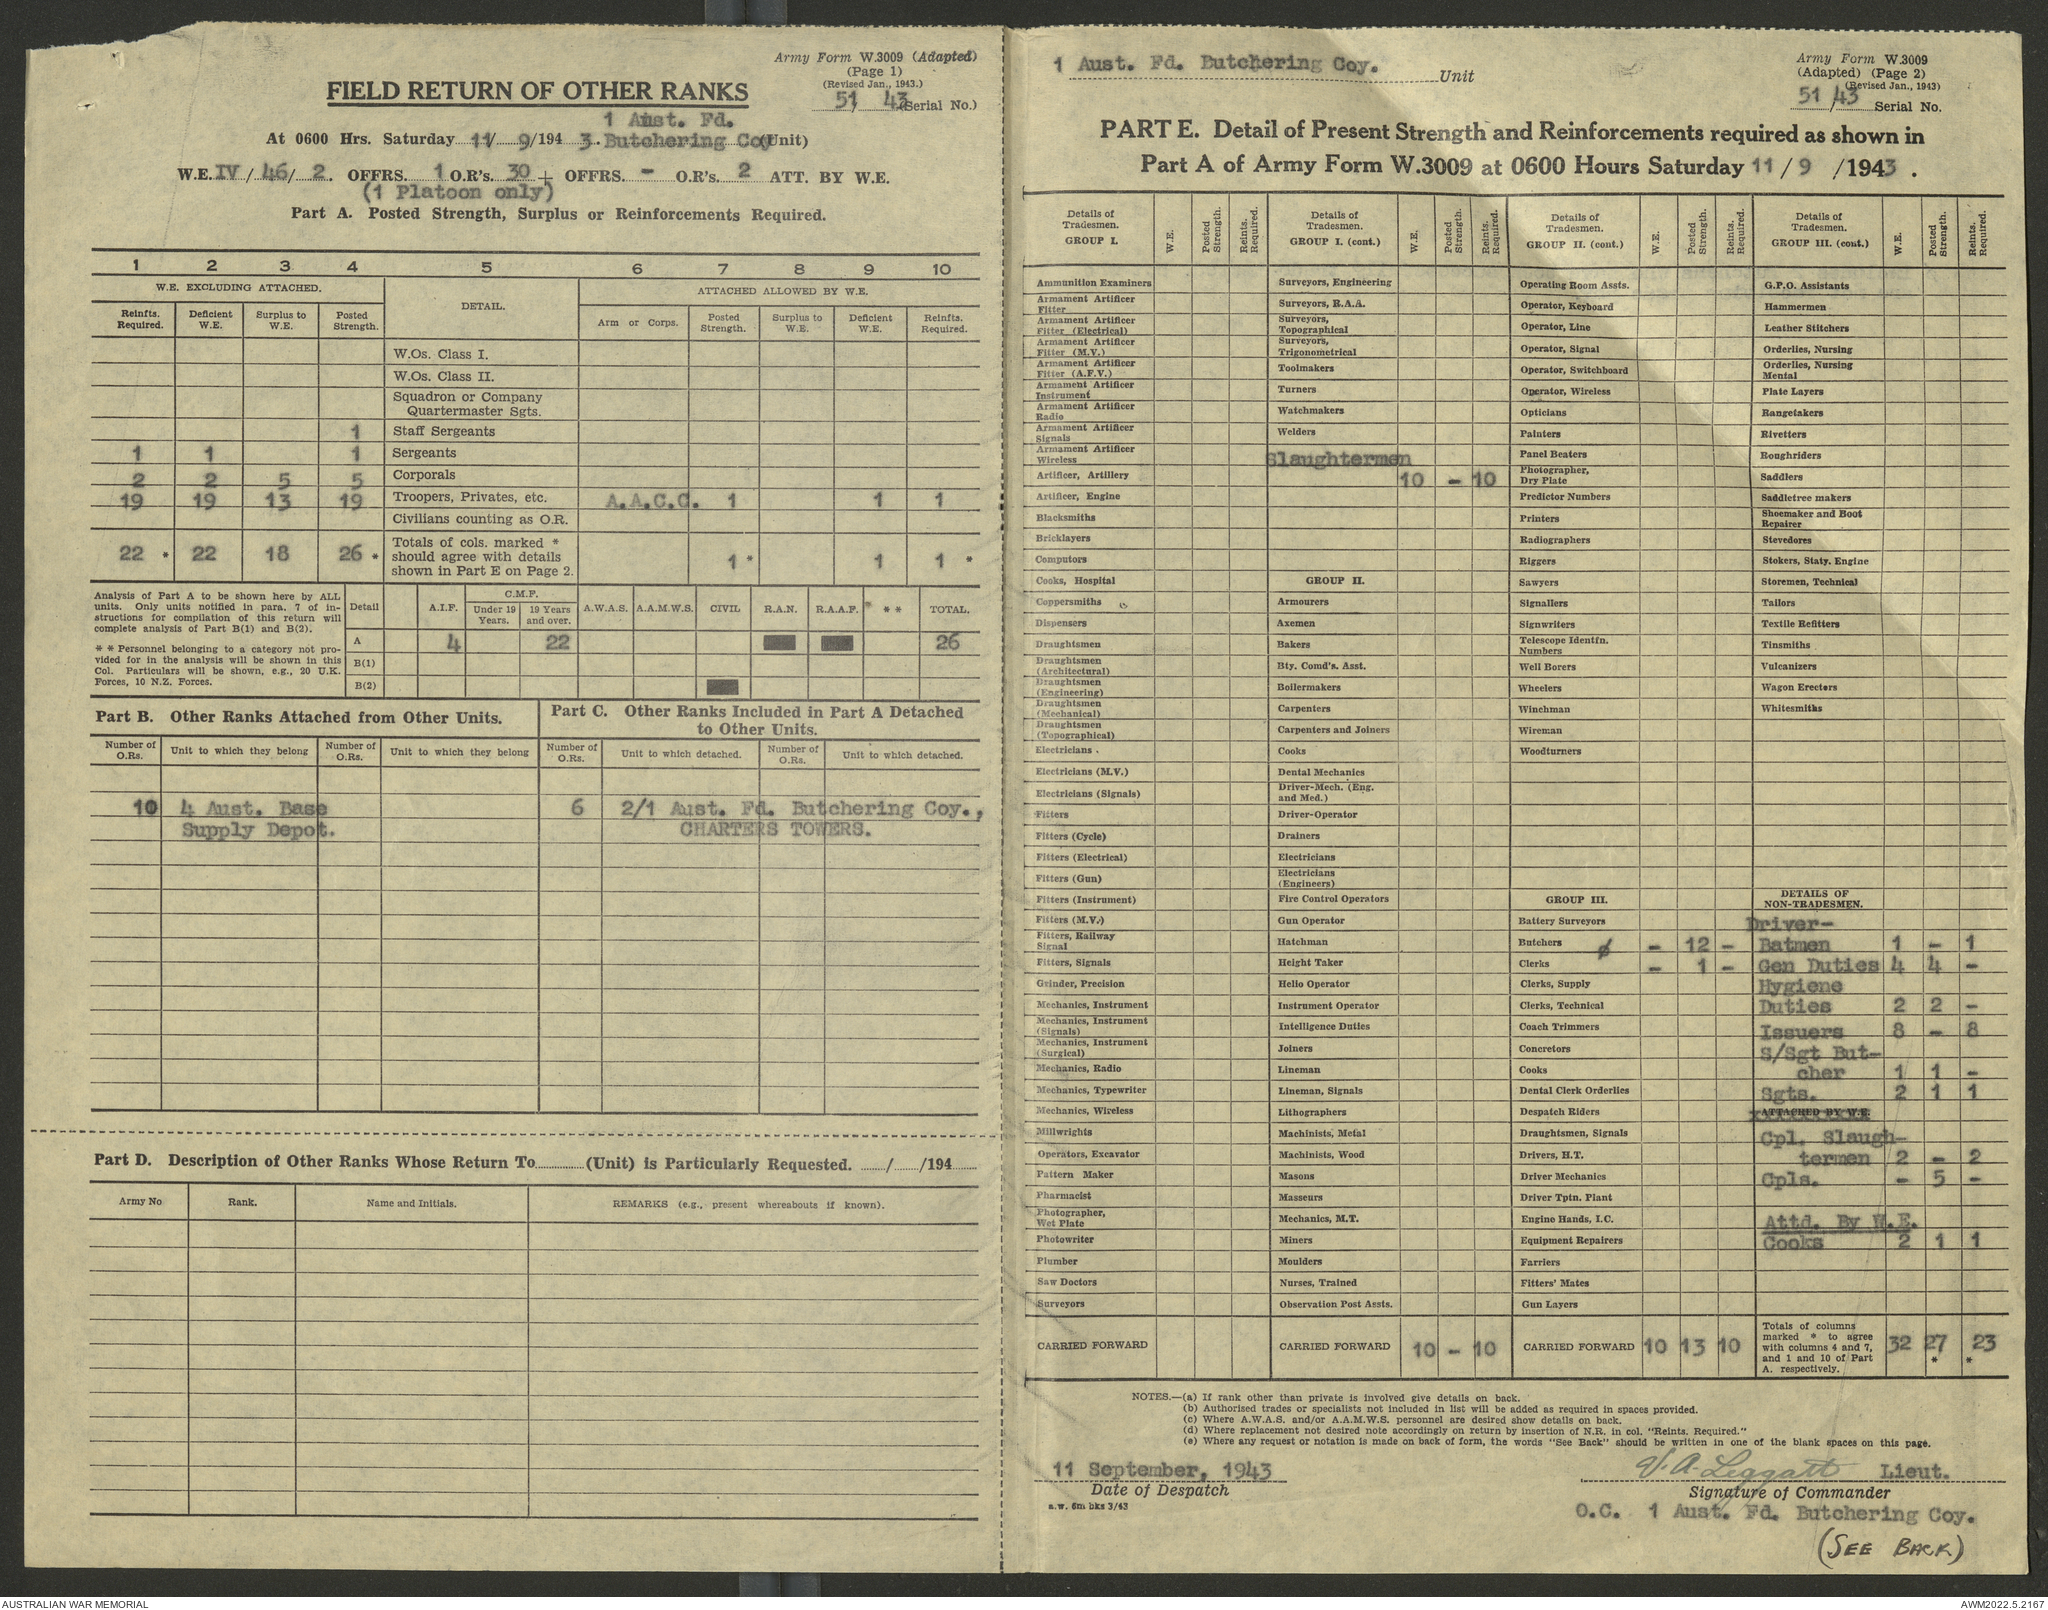 Army Form W.3009 (Adapted)
(Page 1)
(Revised Jan., 1943.)
FIELD RETURN OF OTHER RANKS
51 43 (Serial No.)
1 Aust. Fd.
At 0600 Hrs. Saturday 11/ 9/194 3. Butchering Coy (Unit)
W.E. IV / 46/ 2. OFFRS. 1 O.R's. 30 + OFFRS. - O.R's. 2 ATT. BY W.E.
(1 Platoon only)
Part A. Posted Strength, Surplus or Reinforcements Required.
1 2 3 4 5 6 7 8 9 10
W.E. EXCLUDING ATTACHED. DETAIL. ATTACHED ALLOWED BY W.E.
Reinfts. Required. Deficient W.E. Surplus to W.E. Posted Strength. Arm or Corps. Posted Strength. Surplus to W.E. Deficient W.E. Reinfts. Required.
W.Os. Class I.
W.Os. Class II.
Squadron or Company
Quartermaster Sgts.
1 Staff Sergeants
1 1 1 Sergeants
2 2 5 5 Corporals
19 19 13 19 Troopers, Privates, etc. A.A.C.C. 1 1 1
Civilians counting as O.R.
22 * 22 18 26 * Totals of cols. marked * should agree with details shown in Part E on Page 2. 1 * 1 1 *
Analysis of Part A to be shown here by ALL
units. Only units notified in para. 7 of in-
structions for compilation of this return will
complete analysis of Part B(1) and B(2).
* * Personnel belonging to a category not pro-
vided for in the analysis will be shown in this
Col. Particulars will be shown, e.g., 20 U.K.
Forces, 10 N.Z. Forces.
Detail A.I.F. C.M.F. Under 19 Years. 19 Years and over. A.W.A.S. A.A.M.W.S. CIVIL R.A.N. R.A.A.F. * * TOTAL.
A 4 22 26
B(1)
B(2)
Part B. Other Ranks Attached from Other Units.
Number of O.Rs. Unit to which they belong Number of O.Rs. Unit to which they belong
10 4 Aust. Base
Supply Depot.
Part C. Other Ranks Included in Part A Detached
to Other Units.
Number of O.Rs. Unit to which detached. Number of O.Rs. Unit to which detached.
6 2/1 Aust. Fd. Butchering Coy.,
CHARTERS TOWERS.
Part D. Description of Other Ranks Whose Return To (Unit) is Particularly Requested. / /194
Army No Rank. Name and Initials. REMARKS (e.g., present whereabouts if known).
1 Aust. Fd. Butchering Coy. Unit
Army Form W.3009
(Adapted) (Page 2)
(Revised Jan., 1943)
51/43 Serial No.
PART E. Detail of Present Strength and Reinforcements required as shown in
Part A of Army Form W.3009 at 0600 Hours Saturday 11/ 9 /1943.
Details of Tradesmen. GROUP I. W.E. Posted Strength. Reints. Required.
Ammunition Examiners
Armament Artificer Fitter
Armament Artificer Fitter (Electrical)
Armament Artificer Fitter (M.V.)
Armament Artificer Fitter (A.F.V.)
Armament Artificer Instrument
Armament Artificer Radio
Armament Artificer Signals
Armament Artificer Wireless
Artificer, Artillery
Artificer, Engine
Blacksmiths
Bricklayers
Computors
Cooks, Hospital
Coppersmiths
Dispensers
Draughtsmen
Draughtsmen (Architectural)
Draughtsmen (Engineering)
Draughtsmen (Mechanical)
Draughtsmen (Topographical)
Electricians
Electricians (M.V.)
Electricians (Signals)
Fitters
Fitters (Cycle)
Fitters (Electrical)
Fitters (Gun)
Fitters (Instrument)
Fitters (M.V.)
Fitters, Railway Signal
Fitters, Signals
Grinder, Precision
Mechanics, Instrument
Mechanics, Instrument (Signals)
Mechanics, Instrument (Surgical)
Mechanics, Radio
Mechanics, Typewriter
Mechanics, Wireless
Millwrights
Operators, Excavator
Pattern Maker
Pharmacist
Photographer, Wet Plate
Photowriter
Plumber
Saw Doctors
Surveyors
CARRIED FORWARD
Details of Tradesmen. GROUP I. (cont.) W.E. Posted Strength. Reints. Required.
Surveyors, Engineering
Surveyors, R.A.A.
Surveyors, Topographical
Surveyors, Trigonometrical
Toolmakers
Turners
Watchmakers
Welders
Slaughtermen
10 - 10
GROUP II.
Armourers
Axemen
Bakers
Bty. Comd's. Asst.
Boilermakers
Carpenters
Carpenters and Joiners
Cooks
Dental Mechanics
Driver-Mech. (Eng. and Med.)
Driver-Operator
Drainers
Electricians
Electricians (Engineers)
Fire Control Operators
Gun Operator
Hatchman
Height Taker
Helio Operator
Instrument Operator
Intelligence Duties
Joiners
Lineman
Lineman, Signals
Lithographers
Machinists, Metal
Machinists, Wood
Masons
Masseurs
Mechanics, M.T.
Miners
Moulders
Nurses, Trained
Observation Post Assts.
CARRIED FORWARD 10 - 10
Details of Tradesmen. GROUP II. (cont.) W.E. Posted Strength. Reints. Required.
Operating Room Assts.
Operator, Keyboard
Operator, Line
Operator, Signal
Operator, Switchboard
Operator, Wireless
Opticians
Painters
Panel Beaters
Photographer, Dry Plate
Predictor Numbers
Printers
Radiographers
Riggers
Sawyers
Signallers
Signwriters
Telescope Identfn. Numbers
Well Borers
Wheelers
Winchman
Wireman
Woodturners
GROUP III.
Battery Surveyors
Butchers ø - 12 -
Clerks - 1 -
Clerks, Supply
Clerks, Technical
Coach Trimmers
Concretors
Cooks
Dental Clerk Orderlies
Despatch Riders
Draughtsmen, Signals
Drivers, H.T.
Driver Mechanics
Driver Tptn. Plant
Engine Hands, I.C.
Equipment Repairers
Farriers
Fitters' Mates
Gun Layers
CARRIED FORWARD 10 13 10
Details of Tradesmen. GROUP III. (cont.) W.E. Posted Strength. Reints. Required.
G.P.O. Assistants
Hammermen
Leather Stitchers
Orderlies, Nursing
Orderlies, Nursing Mental
Plate Layers
Rangetakers
Rivetters
Roughriders
Saddlers
Saddletree makers
Shoemaker and Boot Repairer
Stevedores
Stokers, Staty. Engine
Storemen, Technical
Tailors
Textile Refitters
Tinsmiths
Vulcanizers
Wagon Erectors
Whitesmiths
DETAILS OF NON-TRADESMEN.
Driver-
Batmen 1 - 1
Gen Duties 4 4 -
Hygiene
Duties 2 2 -
Issuers 8 - 8
S/Sgt But-
cher 1 1 -
Sgts. 2 1 1
ATTACHED BY W.E.
Cpl. Slaugh-
termen 2 - 2
Cpls. - 5 -
Attd. By W.E.
Cooks 2 1 1
Totals of columns marked * to agree with columns 4 and 7, and 1 and 10 of Part A. respectively. 32 27 * 23 *
NOTES.—(a) If rank other than private is involved give details on back.
(b) Authorised trades or specialists not included in list will be added as required in spaces provided.
(c) Where A.W.A.S. and/or A.A.M.W.S. personnel are desired show details on back.
(d) Where replacement not desired note accordingly on return by insertion of N.R. in col. "Reints. Required."
(e) Where any request or notation is made on back of form, the words "See Back" should be written in one of the blank spaces on this page.
11 September, 1943
Date of Despatch
a.w. 6m bks 3/43
V. A. Leggatt Lieut.
Signature of Commander
O.C. 1 Aust. Fd. Butchering Coy.
(SEE BACK)
AUSTRALIAN WAR MEMORIAL
AWM2022.5.2167